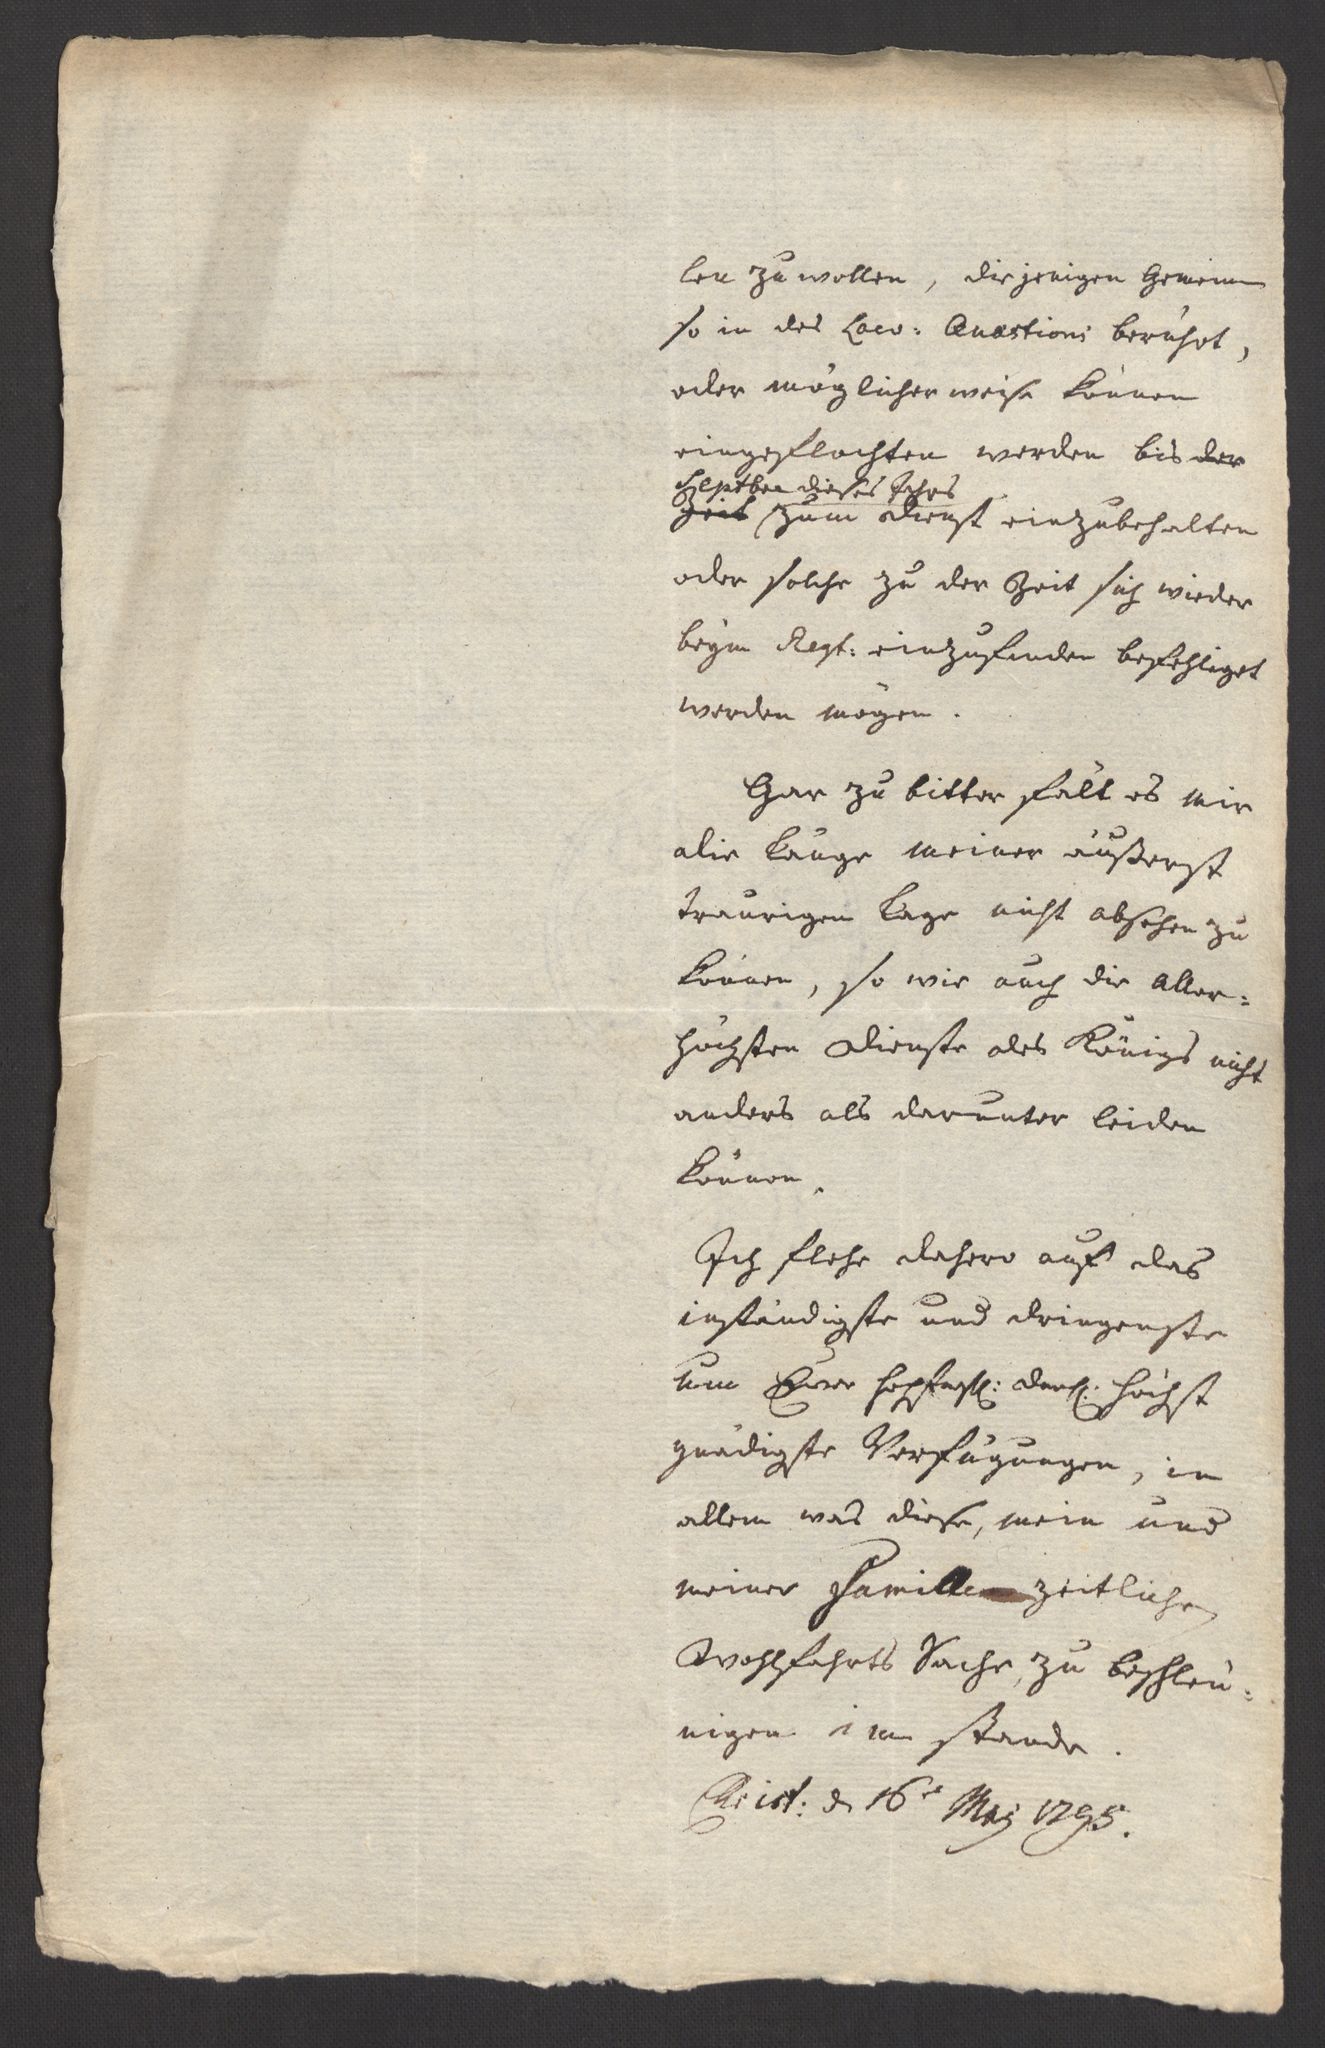 len zu wollen, diejenigen Gemeinen
so in des Loco: Quæstioni berührt,
oder möglicher weise können
eingeflochten werden bis der
Septber dieses Jahrs
Zeit zum dienst einzubehalten
oder solche zu der Zeit sich wieder
beym Regt: einzufinden befehliget
werden mögen.
Gar zu bitter fält es mir
die Länge meiner äußerst
traurigen Lage nicht absehen zu
können, so wie auch die Aller=
höchsten Dienste des Königs nicht
anders als darunter leiden
können.
Ich flehe dahero auf das
inständigste und dringenste
um Euer Hochfürstl: Durchl: höchst
gnädigste Verfügungen, in
allem was diese, mein und
meiner Famille zeitliche
Wohlfahrts Sache, zu beschleu=
nigen im stande.
Christ: d 16t Maj 1795.